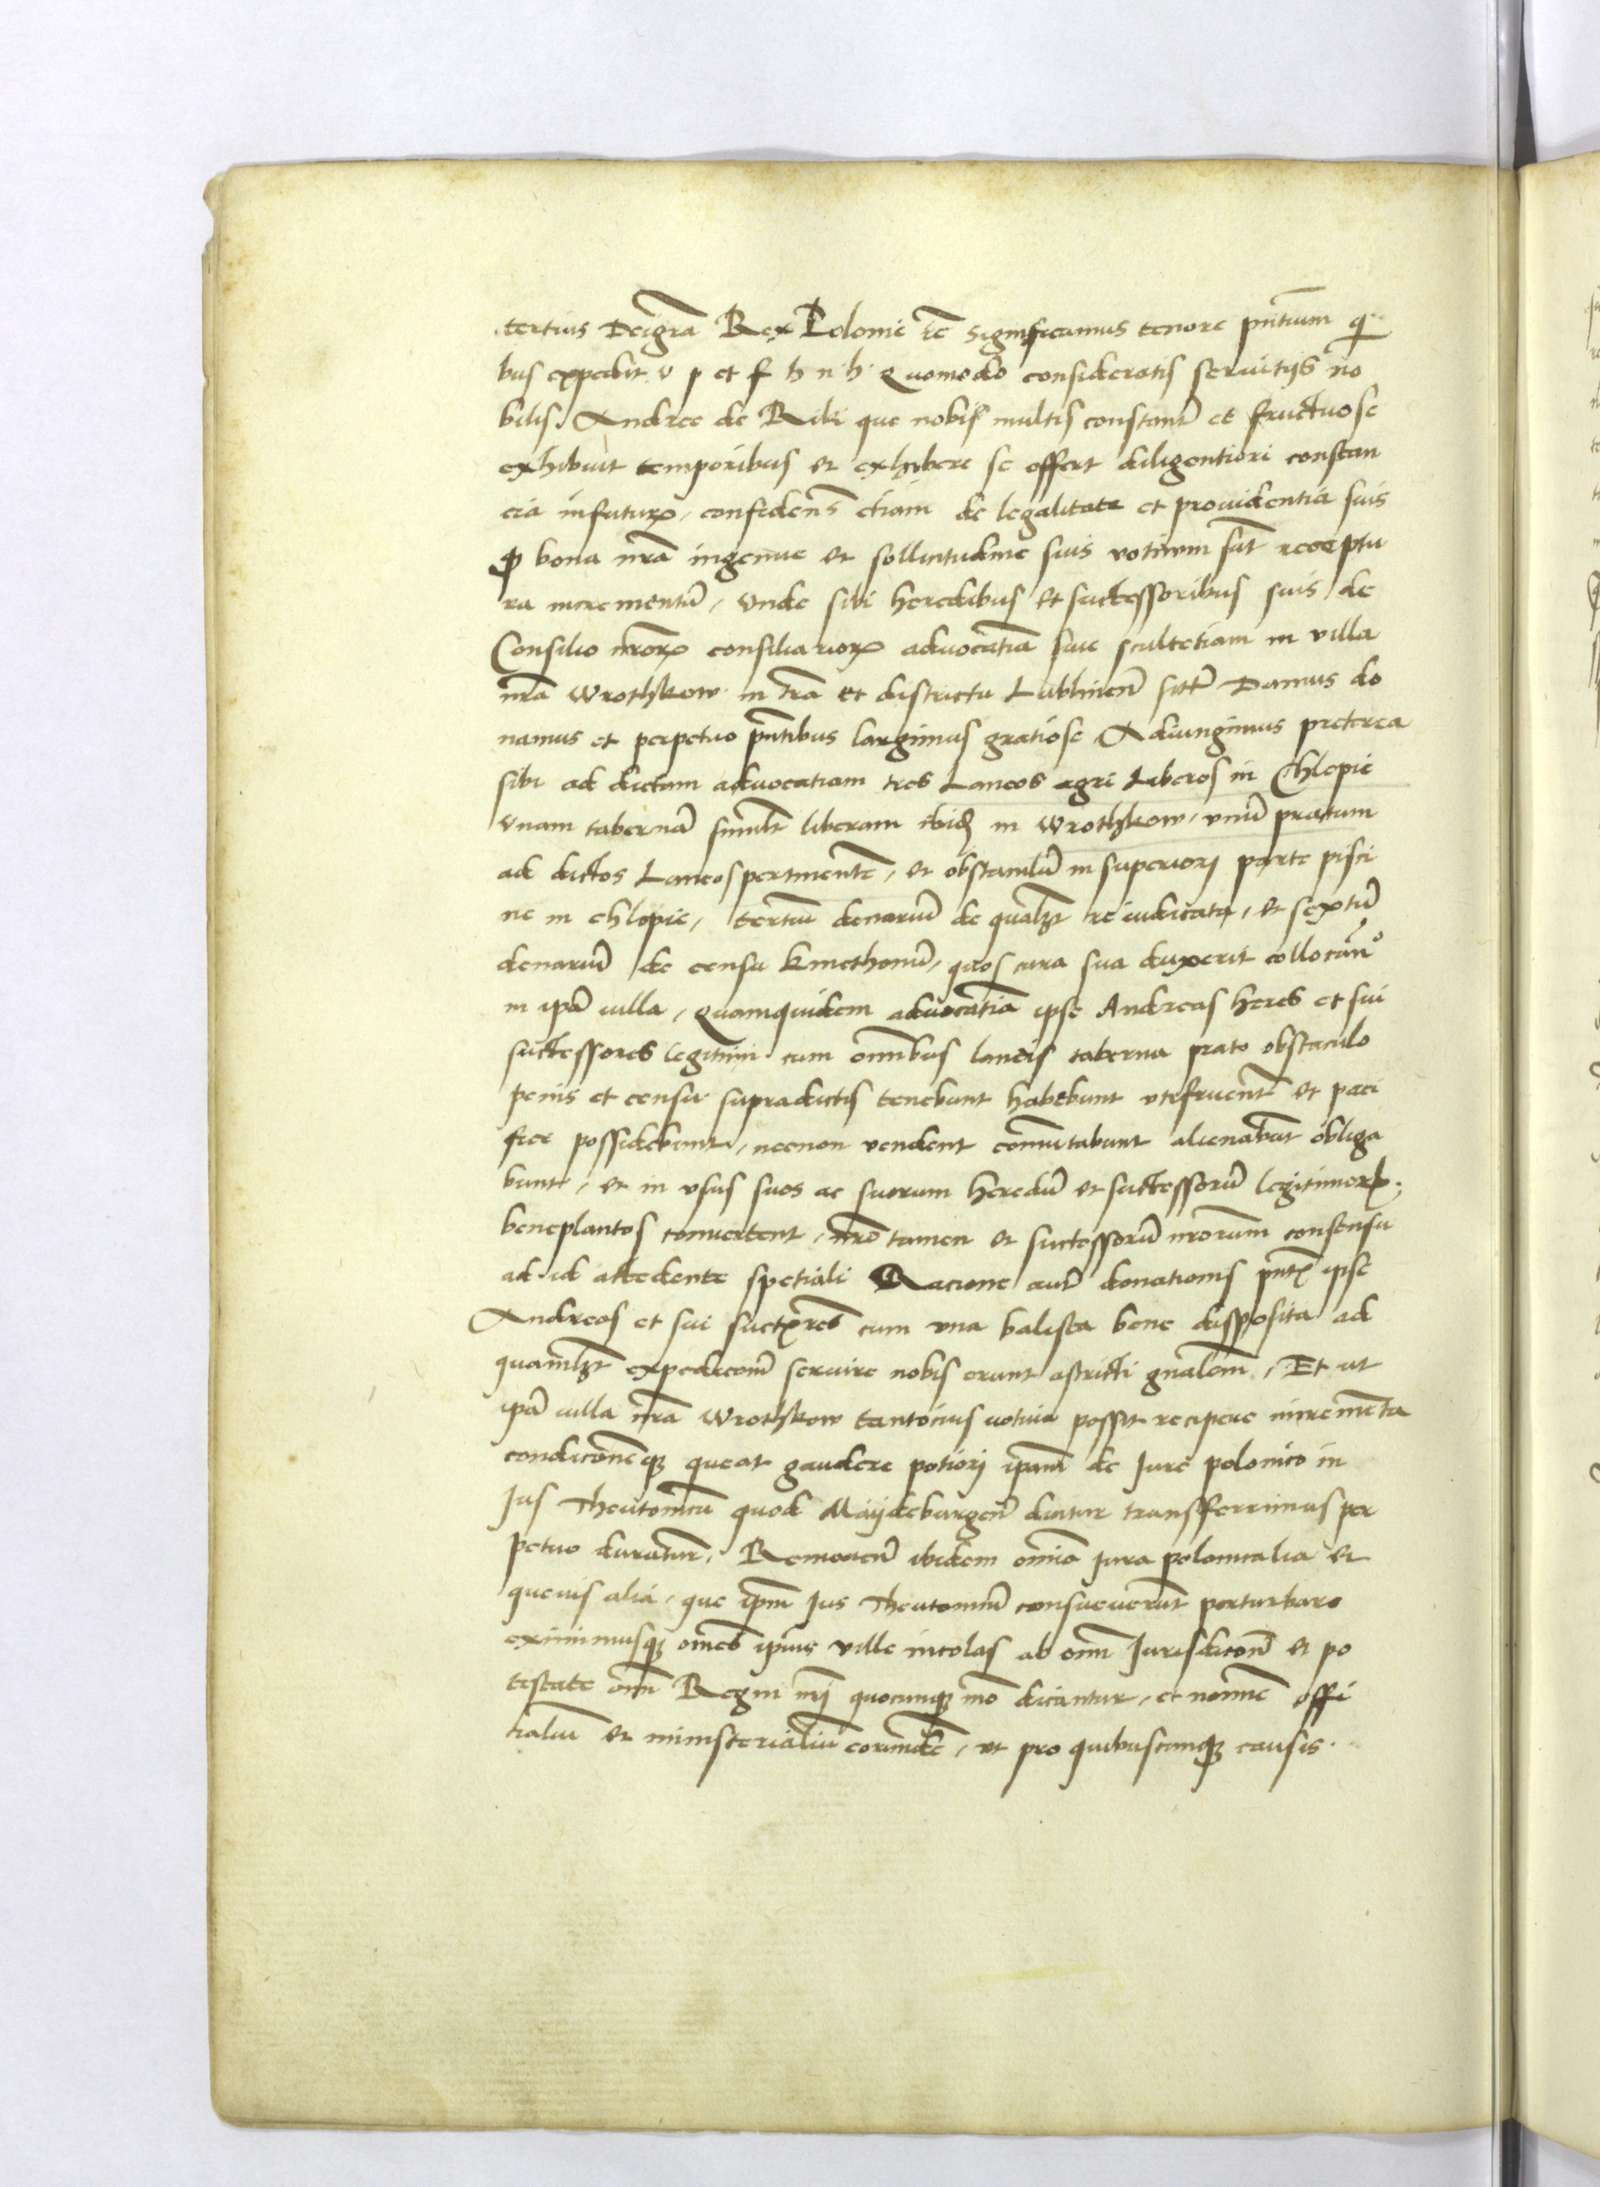 tertius Dei grã Rex Polonie ꝛc̃ Significamus tenore pñtium qͥ
bus expedit v p et f h n h Quomodo consideratis servitijs no
bilis Andree de Ribi que nobis multis constant̃ et fructuose
exhibuit temporibus et exhibere se offert diligentiori constan
cia infuturꝝ, confidens̃ etiam de legalitate et prouidentia suis
ꝙ bona nr̃a ingenue et sollicitudine suis votiuum sũt receptu
ra incrementũ, Vnde sibi heredibus et successoribus suis de
Consilio nr̃orꝝ consiliariorꝝ advocatiã siue scultetiam in villa
nr̃a Wrothkow in tr̃a et districtu Lublinen̄ sitt̃ Damus do
namus et perpetuo pñtibus largimus gratiose Adiungimus preterea
sibi ad dictam advocatiam tres Laneos agri Liberos in Chlopie
Vnam tabernã similr̃ liberam ibiđ in Wrothkow, vnũ pratum
ad dictos Laneos pertinente, et obstaculũ in superiori parte pisci
ne in chlopie, tertiũ denariũ de qualꝫt re iudicata, et sextũ
denariũ de censu kmethonũ, quos cura sua duxerit collocãn°
in ipã villa, Quamquidem advocatiã ipse Andreas heres et sui
successores legitimi cum omnibus laneis taberna prato obstaculo
penis et censu supradictis tenebunt habebunt vtifruent̃ et paci
fice possidebunt, necnon vendent com̃utabunt alienabũt obliga
bunt, et in vsus suos ac suorum heredũ et successorũ legitimorꝝ
beneplacitos convertent, nr̃o tamen et successorũ nr̃orum consensu
ad id accedente spetiali Racione aut̃ donationis pñtꝭ ipse
Andreas et sui suctꝝres cum vna balista bene disposita ad
quamlꝫt expedicoñ servire nobis erunt astricti gñalem̃, Et ut
ipã villa nr̃a Wrothkow tantocius votiua possit recipere incremẽta
condicõnemqꝫ queat gaudere potiori ipam̃ de Jure polonico in
Jus Theutonicũ quod Maijdeburgen̄ dicitur transferrimus per
petuo duratur̃, Removen̄ ibidem omnia Jura polonicalia et
quevis alia, que ipm̃ Jus Theutonicũ consueverũt perturbare
eximimusqꝫ omnes ipius ville incolas ab om̃i Jurisdicõne et po
testate om̃i Regni nr̃i quocunqꝫ mõ dicantur, et nomine offi
tialiũ et ministerialiũ eorundẽ, ut pro quibuscunqꝫ causis